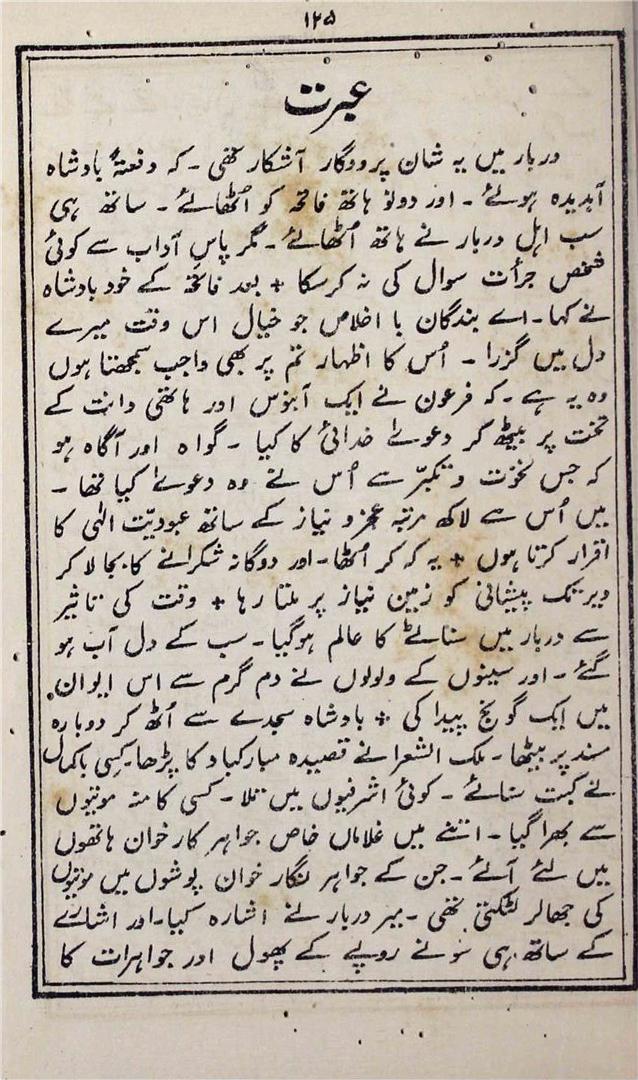 ۱۲۵
عبرت
دربار میں یہ شان پروردگار آشکار تھی۔ کہ دفعتہً بادشاہ
آبدیدہ ہوئے۔ اور دونو ہاتھ فاتحہ کو اُٹھائے۔ ساتھ ہی
سب اہل دربار نے ہاتھ اُٹھائے۔ مگر پاسِ آداب سے کوئی
شخص جرأت سوال کی نہ کرسکا + بعد فاتحہ کے خود بادشاہ
نے کہا۔ اے بندگان با اخلاص جو خیال اس وقت میرے
دل میں گزرا۔ اُس کا اظہار تم پر بھی واجب سمجھتا ہوں
وہ یہ ہے۔ کہ فرعون نے ایک آبنوس اور ہاتھی دانت کے
تخت پر بیٹھ کر دعوےٰ خدائی کا کیا۔ گواہ اور آگاہ ہو
کہ جس نخوت و تکبّر سے اُس نے وہ دعوےٰ کیا تھا۔
میں اُس سے لاکھ مرتبہ عجز و نیاز کے ساتھ عبودیّت الٰہی کا
اقرار کرتا ہوں + یہ کہ کر اُٹھا۔ اور دوگانہ شکرانے کا بجا لا کر
دیر تک پیشانی کو زمین نیاز پر ملتا رہا + وقت کی تاثیر
سے دربار میں سناٹے کا عالم ہوگیا۔ سب کے دل آب ہو
گئے۔ اور سینوں کے ولولوں نے دم گرم سے اس ایوان
میں ایک گونج پیدا کی + بادشاہ سجدے سے اُٹھ کر دوبارہ
مسند پر بیٹھا۔ ملک الشعرا نے قصیدہ مبارکباد کا پڑھا۔ کسی باکمال
نے کبت سنائے۔ کوئی اشرفیوں میں تلا۔ کسی کا منہ موتیوں
سے بھرا گیا۔ اتنے میں غلاماں خاص جواہر کار خوان ہاتھوں
میں لئے آئے۔ جن کے جواہر نگار خوان پوشوں میں موتیوں
کی جھالر لٹکتی تھی۔ میر دربار نے اشارہ کیا۔ اور اشارے
کے ساتھ ہی سونے روپے کے پھول اور جواہرات کا